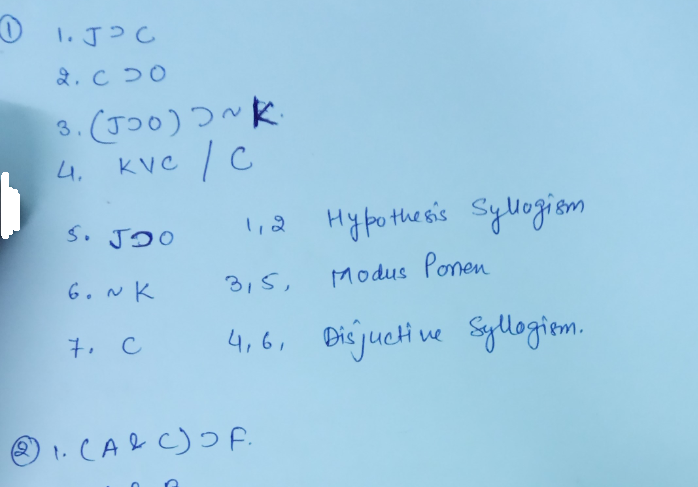 ① 1. J ⊃ C
2. C ⊃ O
3. (J ⊃ O) ⊃ ~ K.
4. K V C / C
5. J ⊃ O 1,2 Hypothesis Syllogism
6. ~ K 3,5, Modus Ponen
7. C 4,6, Disjuctive Syllogism.
② 1. (A & C) ⊃ F.